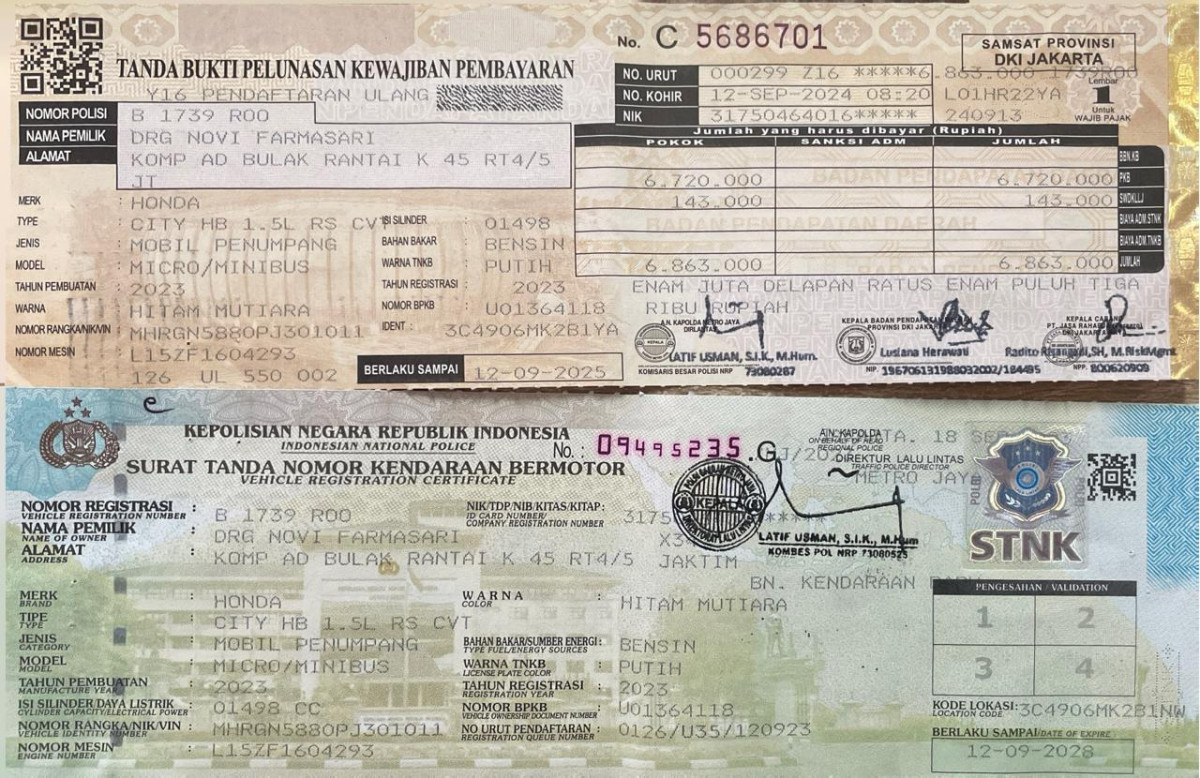 No. C 5686701
SAMSAT PROVINSI
DKI JAKARTA
TANDA BUKTI PELUNASAN KEWAJIBAN PEMBAYARAN
Y16 PENDAFTARAN ULANG
NO. URUT 000299 Z16 *****6.863.000 1739ROO
NO. KOHIR 12-SEP-2024 08:20 L01HR22YA
NIK 31750464016***** 240913
Lembar
1
Untuk
WAJIB PAJAK
NOMOR POLISI B 1739 ROO
NAMA PEMILIK DRG NOVI FARMASARI
ALAMAT KOMP AD BULAK RANTAI K 45 RT4/5
JT
Jumlah yang harus dibayar (Rupiah)
POKOK SANKSI ADM JUMLAH
BBN.KB
6.720.000 6.720.000 PKB
143.000 143.000 SWDKLLJ
BIAYA ADM.STNK
BIAYA ADM.TNKB
6.863.000 6.863.000 JUMLAH
BADAN PENDAPATAN DAERAH
MERK : HONDA
TYPE : CITY HB 1.5L RS CVT ISI SILINDER : 01498
JENIS : MOBIL PENUMPANG BAHAN BAKAR : BENSIN
MODEL : MICRO/MINIBUS WARNA TNKB : PUTIH
TAHUN PEMBUATAN : 2023 TAHUN REGISTRASI : 2023
WARNA : HITAM MUTIARA NOMOR BPKB : U01364118
NOMOR RANGKA/NIK/VIN : MHRGN5880PJ301011 IDENT : 3C4906MK2B1YA
NOMOR MESIN : L15ZF1604293
126 UL 550 002 BERLAKU SAMPAI 12-09-2025
ENAM JUTA DELAPAN RATUS ENAM PULUH TIGA
RIBU RUPIAH
A.N. KAPOLDA METRO JAYA
DIRLANTAS
KEPALA
LATIF USMAN, S.I.K., M.Hum.
KOMISARIS BESAR POLISI NRP 73080287
KEPALA BADAN PENDAPATAN DAERAH
PROVINSI DKI JAKARTA
Lusiana Herawati
NIP. 196706131988032002/184495
KEPALA CABANG
PT. JASA RAHARJA
DKI JAKARTA
Radito Risangadi,SH, M.RiskMgmt
NPP. 800620909
KEPOLISIAN NEGARA REPUBLIK INDONESIA
INDONESIAN NATIONAL POLICE
No. : 09495235.G
SURAT TANDA NOMOR KENDARAAN BERMOTOR
VEHICLE REGISTRATION CERTIFICATE
A.N. KAPOLDA
ON BEHALF OF HEAD
REGIONAL POLICE
DIREKTUR LALU LINTAS
TRAFFIC POLICE DIRECTOR
METRO JAYA
KEPALA
LATIF USMAN, S.I.K., M.Hum
KOMBES POL NRP 73080525
POLRI
STNK
NOMOR REGISTRASI : B 1739 ROO
VEHICLE REGISTRATION NUMBER
NIK/TDP/NIB/KITAS/KITAP:
ID CARD NUMBER/
COMPANY REGISTRATION NUMBER
NAMA PEMILIK : DRG NOVI FARMASARI
NAME OF OWNER
ALAMAT : KOMP AD BULAK RANTAI K 45 RT4/5 JAKTIM
ADDRESS
BN. KENDARAAN
MERK : HONDA
BRAND
WARNA : HITAM MUTIARA
COLOR
TIPE : CITY HB 1.5L RS CVT
TYPE
JENIS : MOBIL PENUMPANG
CATEGORY
BAHAN BAKAR/SUMBER ENERGI : BENSIN
TYPE FUEL/ENERGY SOURCES
MODEL : MICRO/MINIBUS
MODEL
WARNA TNKB : PUTIH
LICENSE PLATE COLOR
TAHUN PEMBUATAN : 2023
MANUFACTURE YEAR
TAHUN REGISTRASI : 2023
REGISTRATION YEAR
ISI SILINDER/DAYA LISTRIK : 01498 CC
CYLINDER CAPACITY/ELECTRICAL POWER
NOMOR BPKB : U01364118
VEHICLE OWNERSHIP DOCUMENT NUMBER
NOMOR RANGKA/NIK/VIN : MHRGN5880PJ301011
VEHICLE IDENTITY NUMBER
NO URUT PENDAFTARAN : 0126/U35/120923
REGISTRATION QUEUE NUMBER
NOMOR MESIN : L15ZF1604293
ENGINE NUMBER
PENGESAHAN / VALIDATION
1 2
3 4
KODE LOKASI: 3C4906MK2B1NW
LOCATION CODE
BERLAKU SAMPAI/DATE OF EXPIRE
12-09-2028